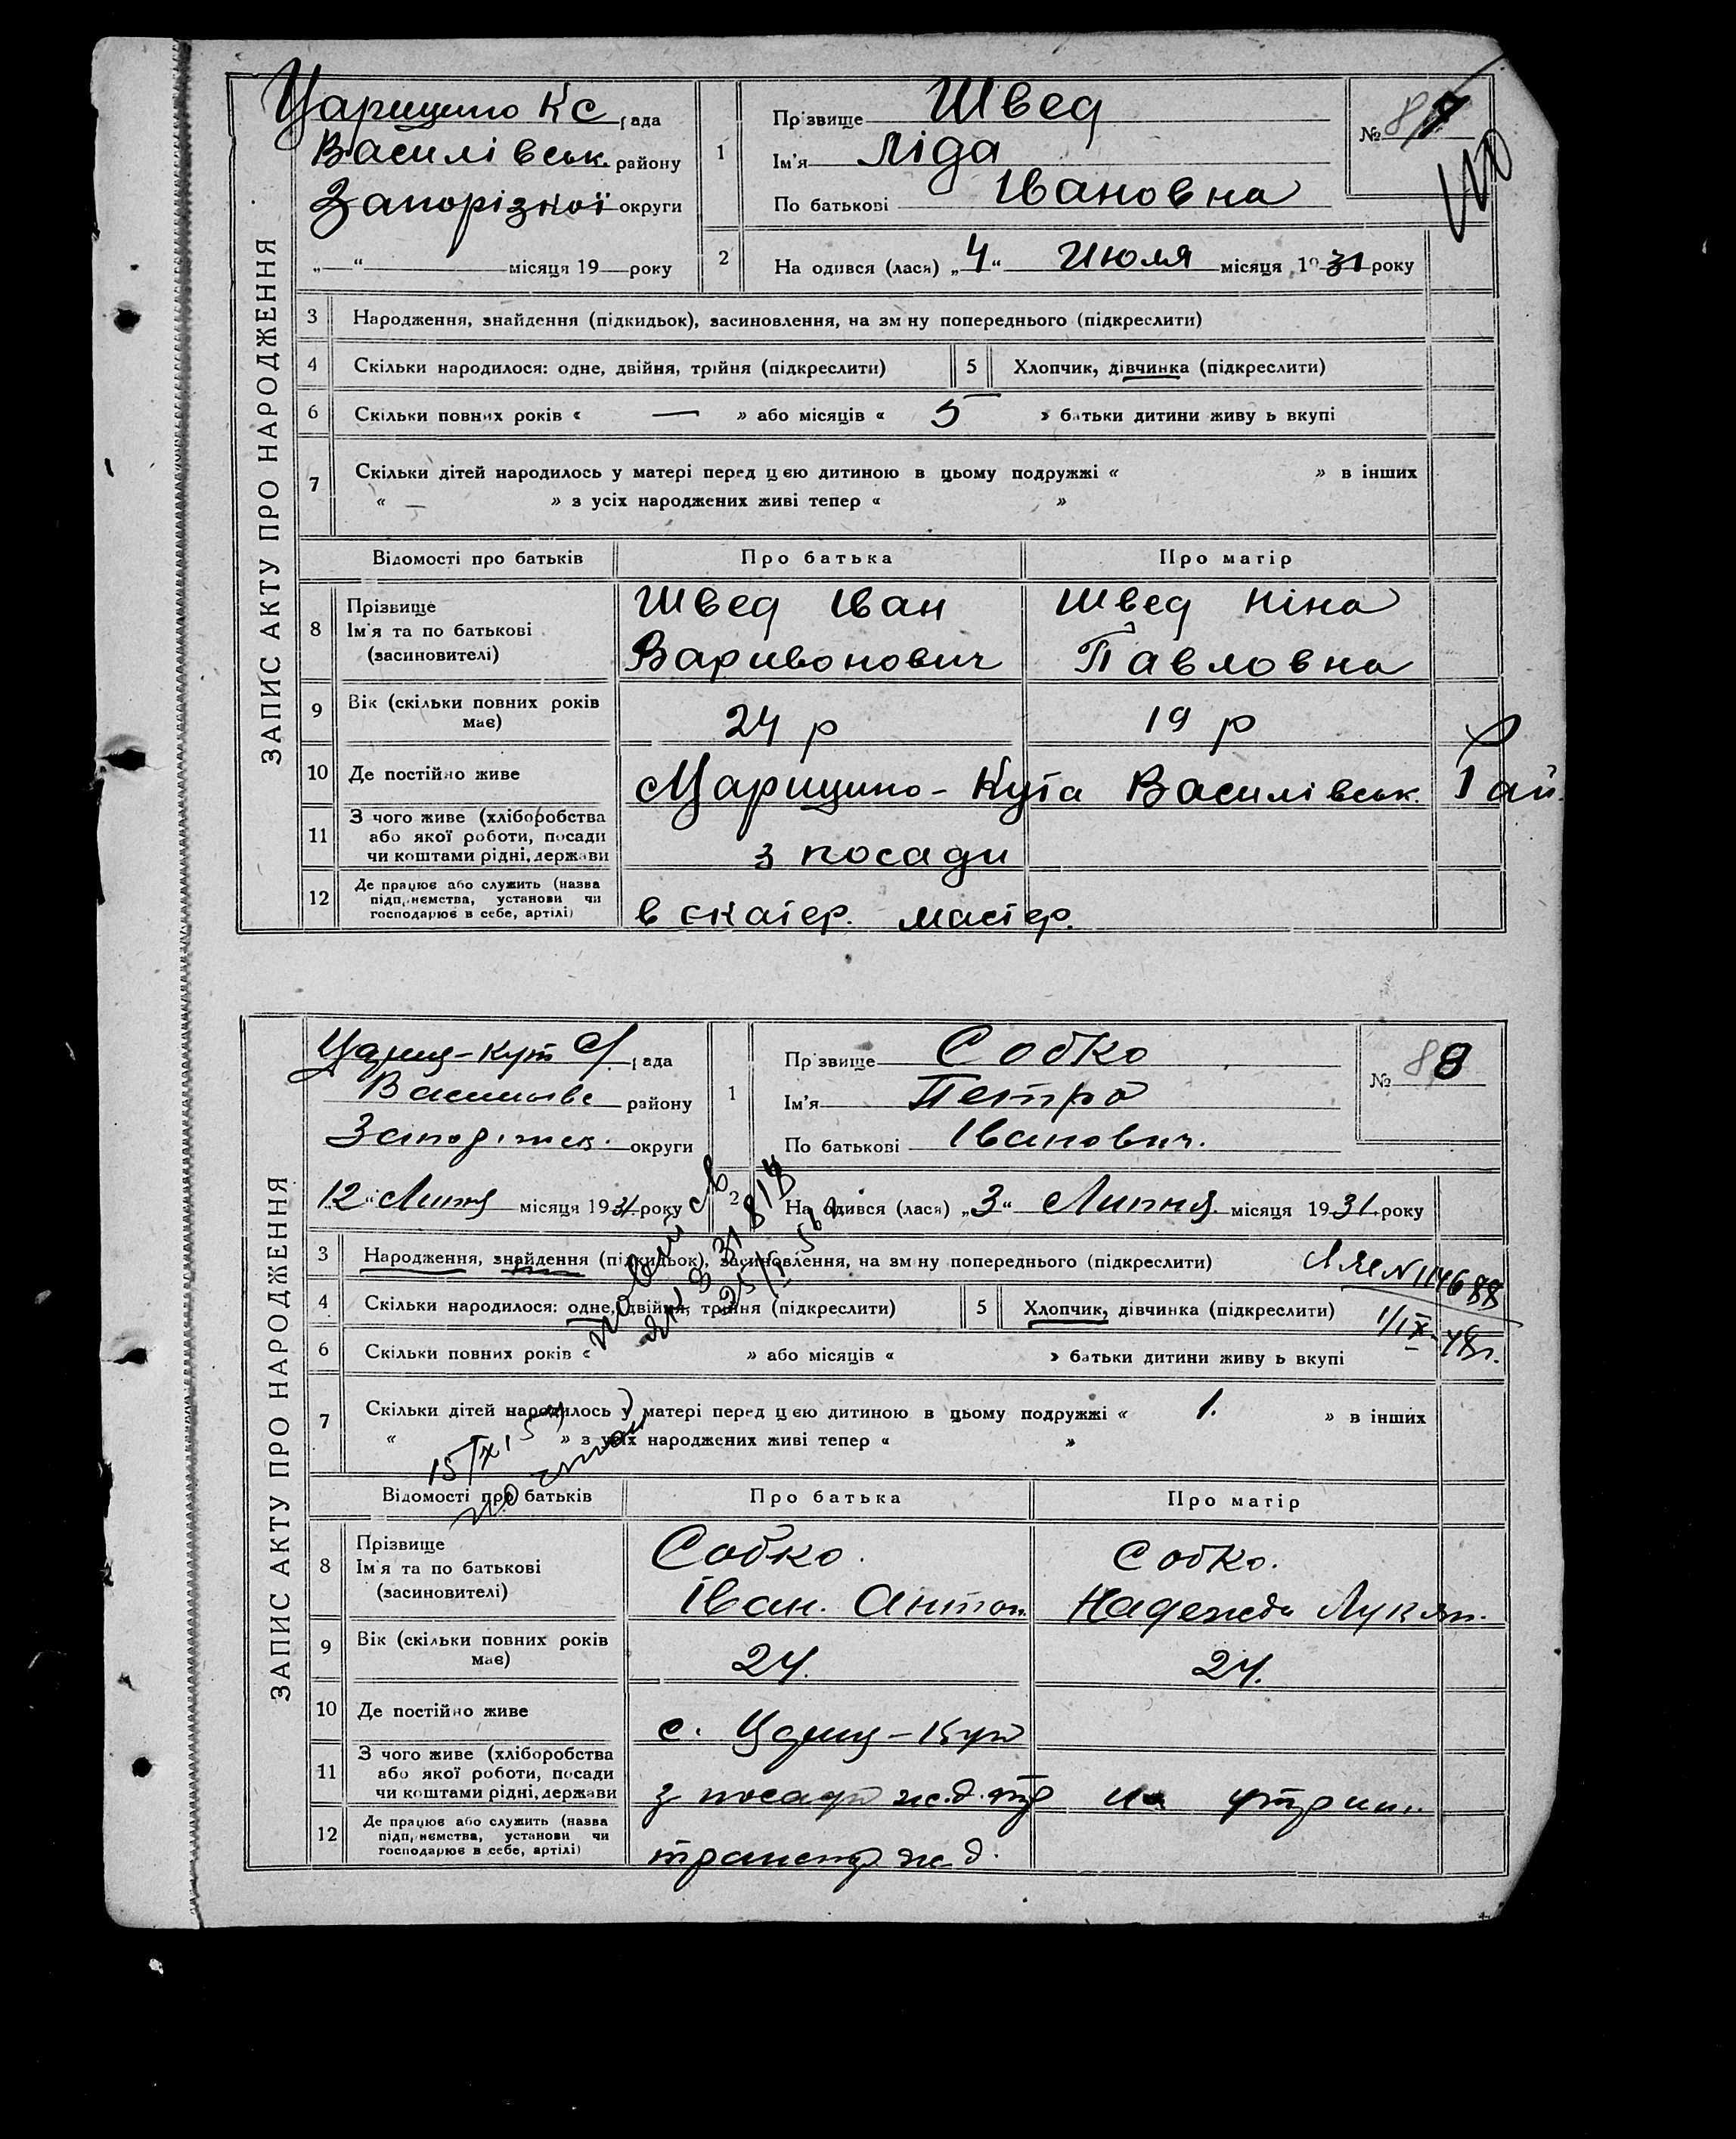 ЗАПИС АКТУ ПРО НАРОДЖЕННЯ
Царицино Кс рада
Василівськ. району
Запорізкої округи
„—“ місяця 19 року
1
Прізвище Швед
Ім'я Ліда
По батькові Івановна
№ 87
2 На одився (лася) „4“ Июля місяця 1931 року
3 Народження, знайдення (підкидьок), засиновлення, на зм ну попереднього (підкреслити)
4 Скільки народилося: одне, двійня, трійня (підкреслити) 5 Хлопчик, дівчинка (підкреслити)
6 Скільки повних років « — » або місяців « 5 » батьки дитини живу ь вкупі
7 Скільки дітей народилось у матері перед цєю дитиною в цьому подружжі « » в інших
« — » з усіх народжених живі тепер « »
Відомості про батьків Про батька Про матір
8 Прізвище
Ім'я та по батькові
(засиновителі)
Швед Іван Швед Ніна
Варивонович Павловна
9 Вік (скільки повних років має) 24 р 19 р
10 Де постійно живе Царицино-Кута Василівськ. Рай.
11 З чого живе (хліборобства
або якої роботи, посади
чи коштами рідні, держави
з посади
12 Де працює або служить (назва
підп, иємства, установи чи
господарює в себе, артілі)
в скатер. мастер.
ЗАПИС АКТУ ПРО НАРОДЖЕННЯ
Цариц-Кут с/ рада
району
округи
12 „Липня місяця 1931 року
1
Прізвище Собко
Ім'я Петро
По батькові Іванович.
№ 88
2 На одився (лася) „3“ Липня місяця 1931 року
3 Народження, знайдення (підкидьок), засиновлення, на зм ну попереднього (підкреслити)
№ 114688
4 Скільки народилося: одне, двійня, трійня (підкреслити) 5 Хлопчик, дівчинка (підкреслити)
1/IX-48г.
6 Скільки повних років « » або місяців « » батьки дитини живу ь вкупі
7 Скільки дітей народилось у матері перед цєю дитиною в цьому подружжі « 1. » в інших
« » з усіх народжених живі тепер « »
Відомості про батьків Про батька Про матір
8 Прізвище
Ім'я та по батькові
(засиновителі)
Собко. Собко.
Іван. Антон. Надежда Лукян.
9 Вік (скільки повних років має) 24. 24.
10 Де постійно живе с. Цариц-Кут
11 З чого живе (хліборобства
або якої роботи, посади
чи коштами рідні, держави
з посади ж.д. на утрим.
12 Де працює або служить (назва
підп, иємства, установи чи
господарює в себе, артілі)
транспор ж.д.